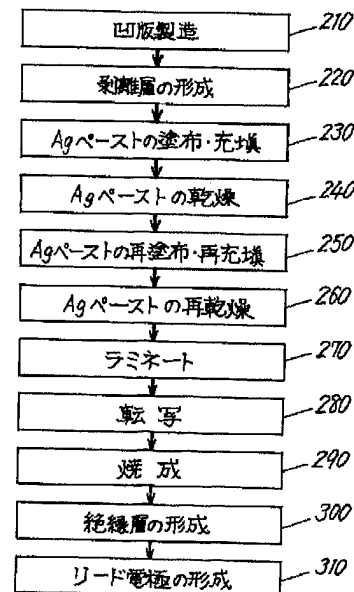 凹版製造 210
剥離層の形成 220
Agペーストの塗布・充填 230
Agペーストの乾燥 240
Agペーストの再塗布・再充填 250
Agペーストの再乾燥 260
ラミネート 270
転写 280
焼成 290
絶縁層の形成 300
リード電極の形成 310